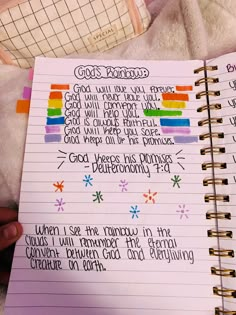 SPECIAL
God's Rainbow:
God will love you forever
God will never leave you
God will comfort you
God will help you
God is always faithful
God will keep you safe
God keeps all of his promises
God keeps his promises
- Deuteronomy 7:9
When I see the rainbow in the
clouds I will remember the eternal
convent between God and everyliving
creature on earth.